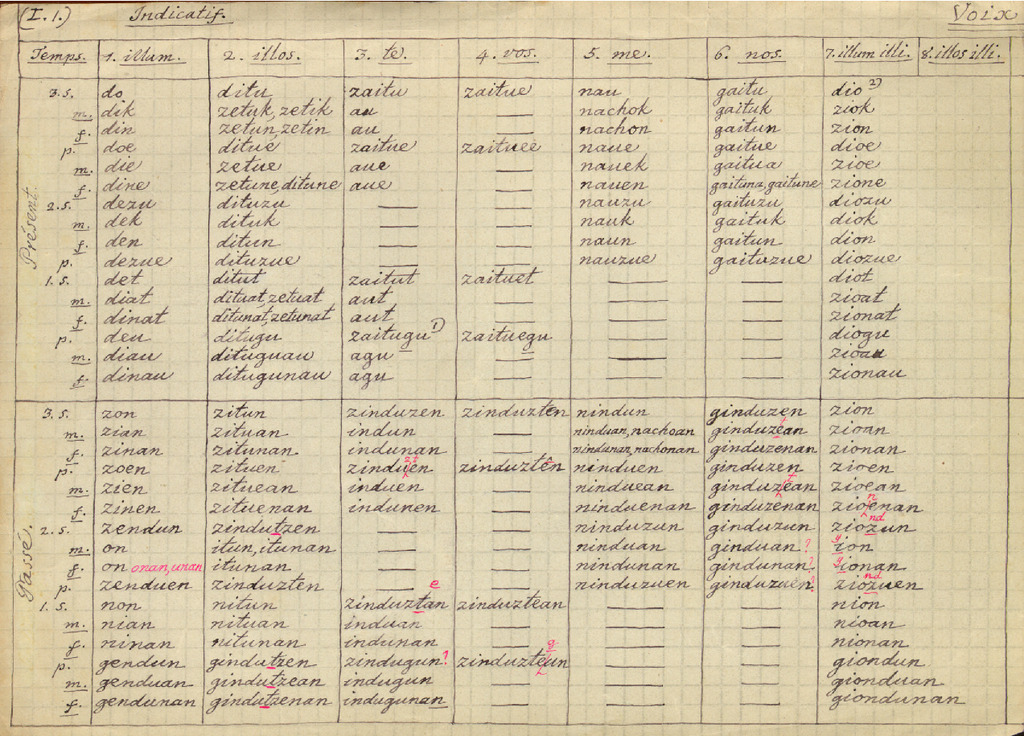 (I.1.) Indicatif. Voix
Temps. 1. illum. 2. illos. 3. te. 4. vos. 5. me. 6. nos. 7. illum illi. 8. illos illi.
Présent.
3. s. do ditu zaitu zaitue nau gaitu dio 2)
m. dik zetuk, zetik au — nachok gaituk ziok
f. din zetun, zetin au — nachon gaitun zion
p. doe ditue zaitue zaituee naue gaitue dioe
m. die zetue aue — nauek gaitua zioe
f. dine zetune, ditune aue — nauen gaituna, gaitune zione
2. s. dezu dituzu — — nauzu gaituzu diozu
m. dek dituk — — nauk gaituk diok
f. den ditun — — naun gaitun dion
p. dezue dituzue — — nauzue gaituzue diozue
1. s. det ditut zaitut zaituet — — diot
m. diat dituat, zetuat aut — — — zioat
f. dinat ditunat, zetunat aut — — — zionat
p. deu ditugu zaitugu 1) zaituegu — — diogu
m. diau dituguau agu — — — zioau
f. dinau ditugunau agu — — — zionau
Passé.
3. s. zon zitun zinduzen zinduzten nindun ginduzen zion
m. zian zituan indun — ninduan, nachoan ginduzean zioan
f. zinan zitunan indunan — nindunan, nachonan ginduzenan zionan
p. zoen zituen zinduen zinduzten ninduen ginduzen zioen
m. zien zituean induen — ninduean ginduzean zioean
f. zinen zituenan indunen — ninduenan ginduzenan zioenan
2. s. zendun zindutzen — — ninduzun ginduzun ziozun
m. on itun, itunan — — ninduan ginduan? ion
f. on onan, unan itunan — — nindunan gindunan? ionan
p. zenduen zinduzten — — ninduzuen ginduzuen? ziozuen
1. s. non nitun zinduztan zinduztean — — nion
m. nian nituan induan — — — nioan
f. ninan nitunan indunan — — — nionan
p. gendun gindutzen zindugun? zinduzteun — — giondun
m. genduan gindutzean indugun — — — gionduan
f. gendunan gindutzenan indugunan — — — giondunan